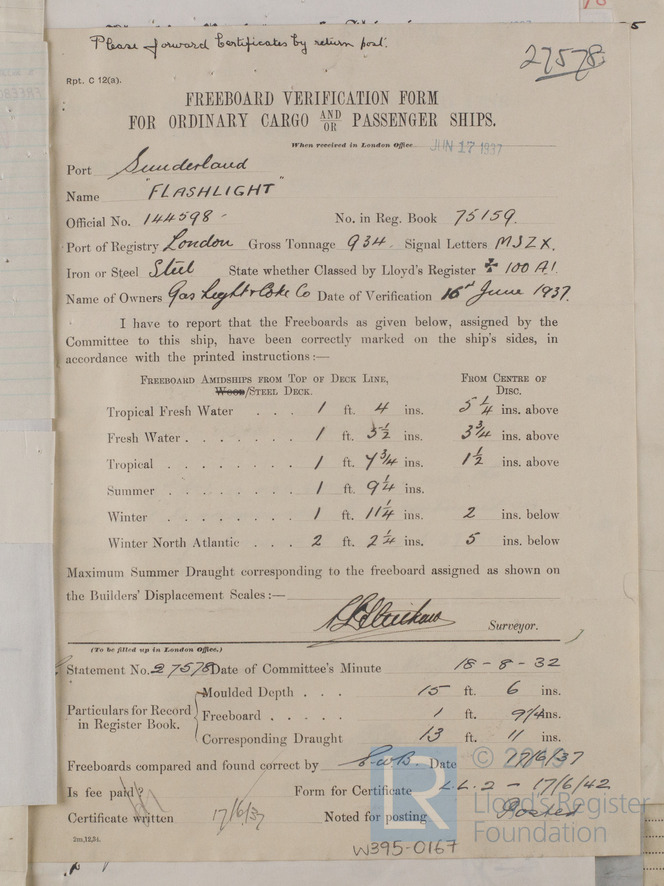 Please forward Certificates by return post.
27578
Rpt. C 12(a).
FREEBOARD VERIFICATION FORM
FOR ORDINARY CARGO AND/OR PASSENGER SHIPS.
When received in London Office JUN 17 1937
Port Sunderland
Name "FLASHLIGHT"
Official No. 144598 No. in Reg. Book 75159.
Port of Registry London Gross Tonnage 934 Signal Letters MJZX.
Iron or Steel Steel State whether Classed by Lloyd's Register 100 A1.
Name of Owners Gas Light & Coke Co Date of Verification 16 June 1937.
I have to report that the Freeboards as given below, assigned by the
Committee to this ship, have been correctly marked on the ship's sides, in
accordance with the printed instructions:—
FREEBOARD AMIDSHIPS FROM TOP OF DECK LINE, FROM CENTRE OF
WOOD/STEEL DECK. DISC.
Tropical Fresh Water . . . 1 ft. 4 ins. 5 1/4 ins. above
Fresh Water . . . . . . . 1 ft. 5 1/2 ins. 3 3/4 ins. above
Tropical . . . . . . . . 1 ft. 7 3/4 ins. 1 1/2 ins. above
Summer . . . . . . . . 1 ft. 9 1/4 ins.
Winter . . . . . . . . 1 ft. 11 1/4 ins. 2 ins. below
Winter North Atlantic . . . 2 ft. 2 1/4 ins. 5 ins. below
Maximum Summer Draught corresponding to the freeboard assigned as shown on
the Builders' Displacement Scales:—
Surveyor.
(To be filled up in London Office.)
Statement No. 27578 Date of Committee's Minute 18-8-32
Particulars for Record in Register Book.
Moulded Depth . . . 15 ft. 6 ins.
Freeboard . . . . . 1 ft. 9 1/4 ins.
Corresponding Draught 13 ft. 11 ins.
Freeboards compared and found correct by Date 17/6/37
Is fee paid? Form for Certificate L.L.2 - 17/6/42
Certificate written 17/6/37 Noted for posting Posted
2m,12,34.
W395-0167
LR
Lloyd's Register
Foundation